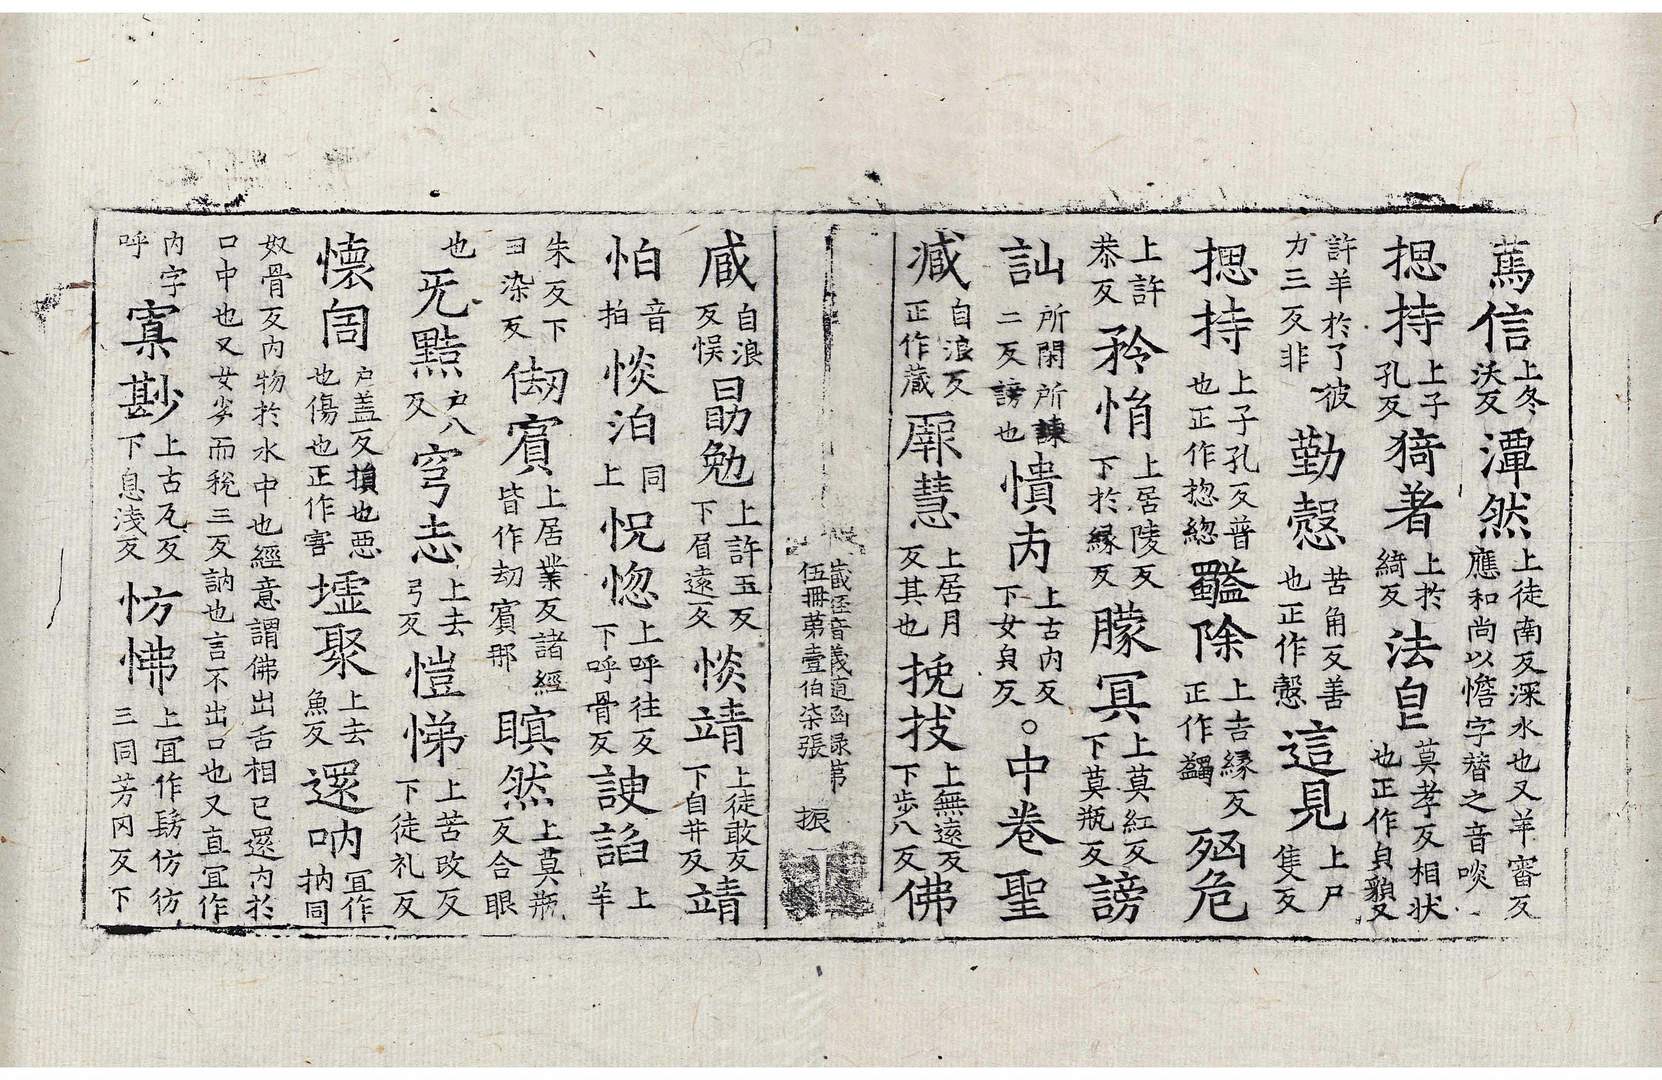 蔿信上冬沃反潭然上徒南反深水也又羊審反應和尚以憺字替之音啖
揌持上子孔反猗著上於綺反法皃莫孝反相狀也正作皃䫉又
許羊於了彼力三反非勤愨苦角反善也正作愨這見上尸隻反
揌持上子孔反普也正作揔緫蠲除上吉緣反正作蠲㓙危
上許恭反矜惰上居陵反下於緣反朦冥上莫紅反下莫瓶反謗
訕所閑所諫二反謗也憒丙上古內反下女皃反○中卷聖
臧自浪反正作藏厥慧上居月反其也挽拔上無遠反下步八反佛
藏経音義随函録第伍冊苐壹伯柒張 振
臧自浪反悮勗勉上許玉反下眉遠反惔靖上徒敢反下自井反靖
怕音拍惔泊同上怳惚上呼往反下呼骨反諛諂上羊
朱反下丑染反㤼賔上居業反諸經皆作劫賔那瞑然上莫瓶反合眼
也旡黠户八反穹志上去弓反愷悌上苦改反下徒礼反
懐㓙户盖反損也惡也傷也正作害墟聚上去魚反還吶冝作抐同
奴骨反內物於水中也經意謂佛出舌相已還內於口中也又女劣而稅三反訥也言不出口也又直冝作
內字呼寡尠上古瓦反下息淺反仿佛上冝作髣仿彷三同芳冈反下